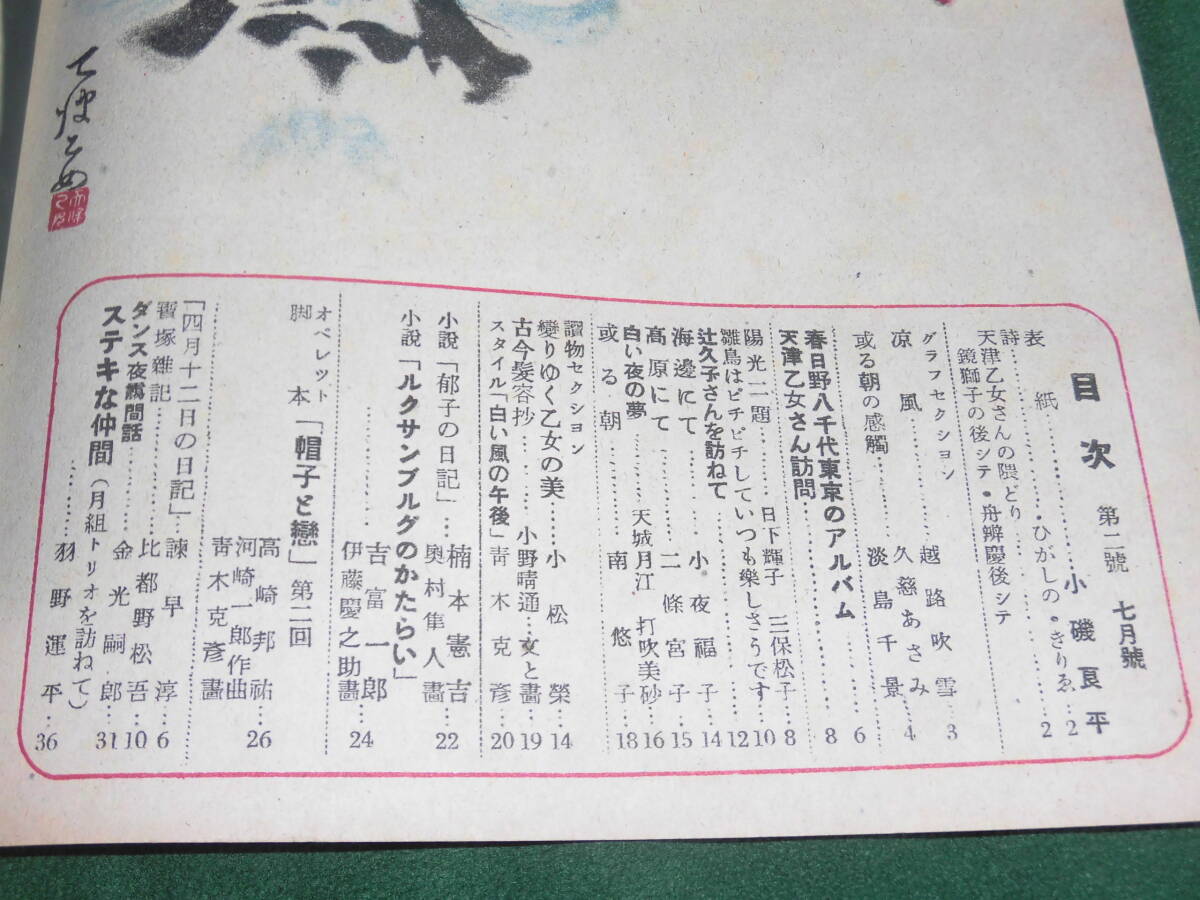 目次 第二號 七月號
表紙………小磯良平
詩………ひがしの・きりゑ…2
天津乙女さんの隈どり
鏡獅子の後シテ・舟辨慶後シテ 2
グラフセクション
越路吹雪…3
涼風………久慈あさみ…4
或る朝の感觸………淡島千景…6
春日野八千代東京のアルバム………8
天津乙女さん訪問………8
陽光二題………日下輝子 三保松子…10
雛鳥はピチピチしていつも樂しさうです…12
辻久子さんを訪ねて………小夜福子…14
海邊にて………二條宮子…15
高原にて………天城月江 打吹美砂…16
白い夜の夢
或る朝………南悠子…18
讀物セクション
變りゆく乙女の美………小松榮…14
古今髮容抄………小野晴通・文と畫…19
スタイル「白い風の午後」青木克彦…20
小説「郁子の日記」………楠本憲吉
奥村隼人畫…22
小説「ルクサンブルグのかたらい」
………吉富一郎
伊藤慶之助畫…24
オペレット脚本「帽子と戀」第二回
高崎邦祐
河崎一郎作曲
青木克彦畫…26
「四月十二日の日記」…諫早淳…6
寶塚雜記………比都野松吾…10
ダンス夜話間話………金光嗣郎…31
ステキな仲間(月組トリオを訪ねて)
………羽野運平…36